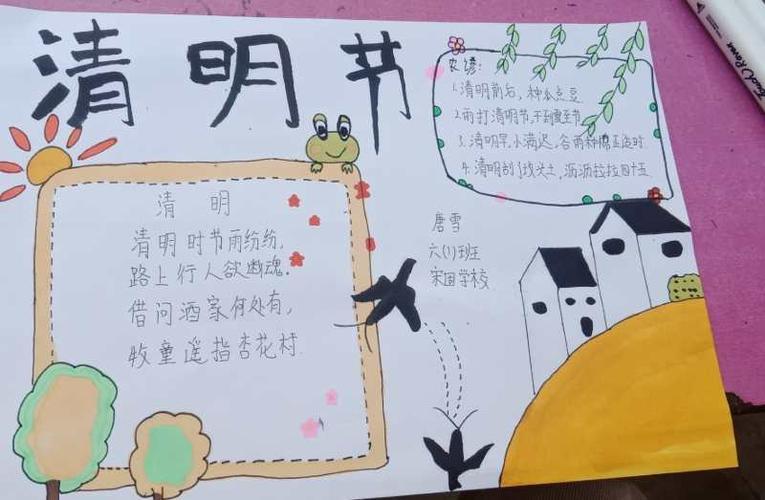 清明节
农谚:
1.清明前后，种瓜点豆
2.雨打清明节,干到夏至节
3.清明早,小满迟,谷雨种棉正适时.
4.清明刮了坟头土,沥沥拉拉四十五.
清 明
清明时节雨纷纷,
路上行人欲断魂.
借问酒家何处有,
牧童遥指杏花村.
唐雪
六(1)班
宋田学校